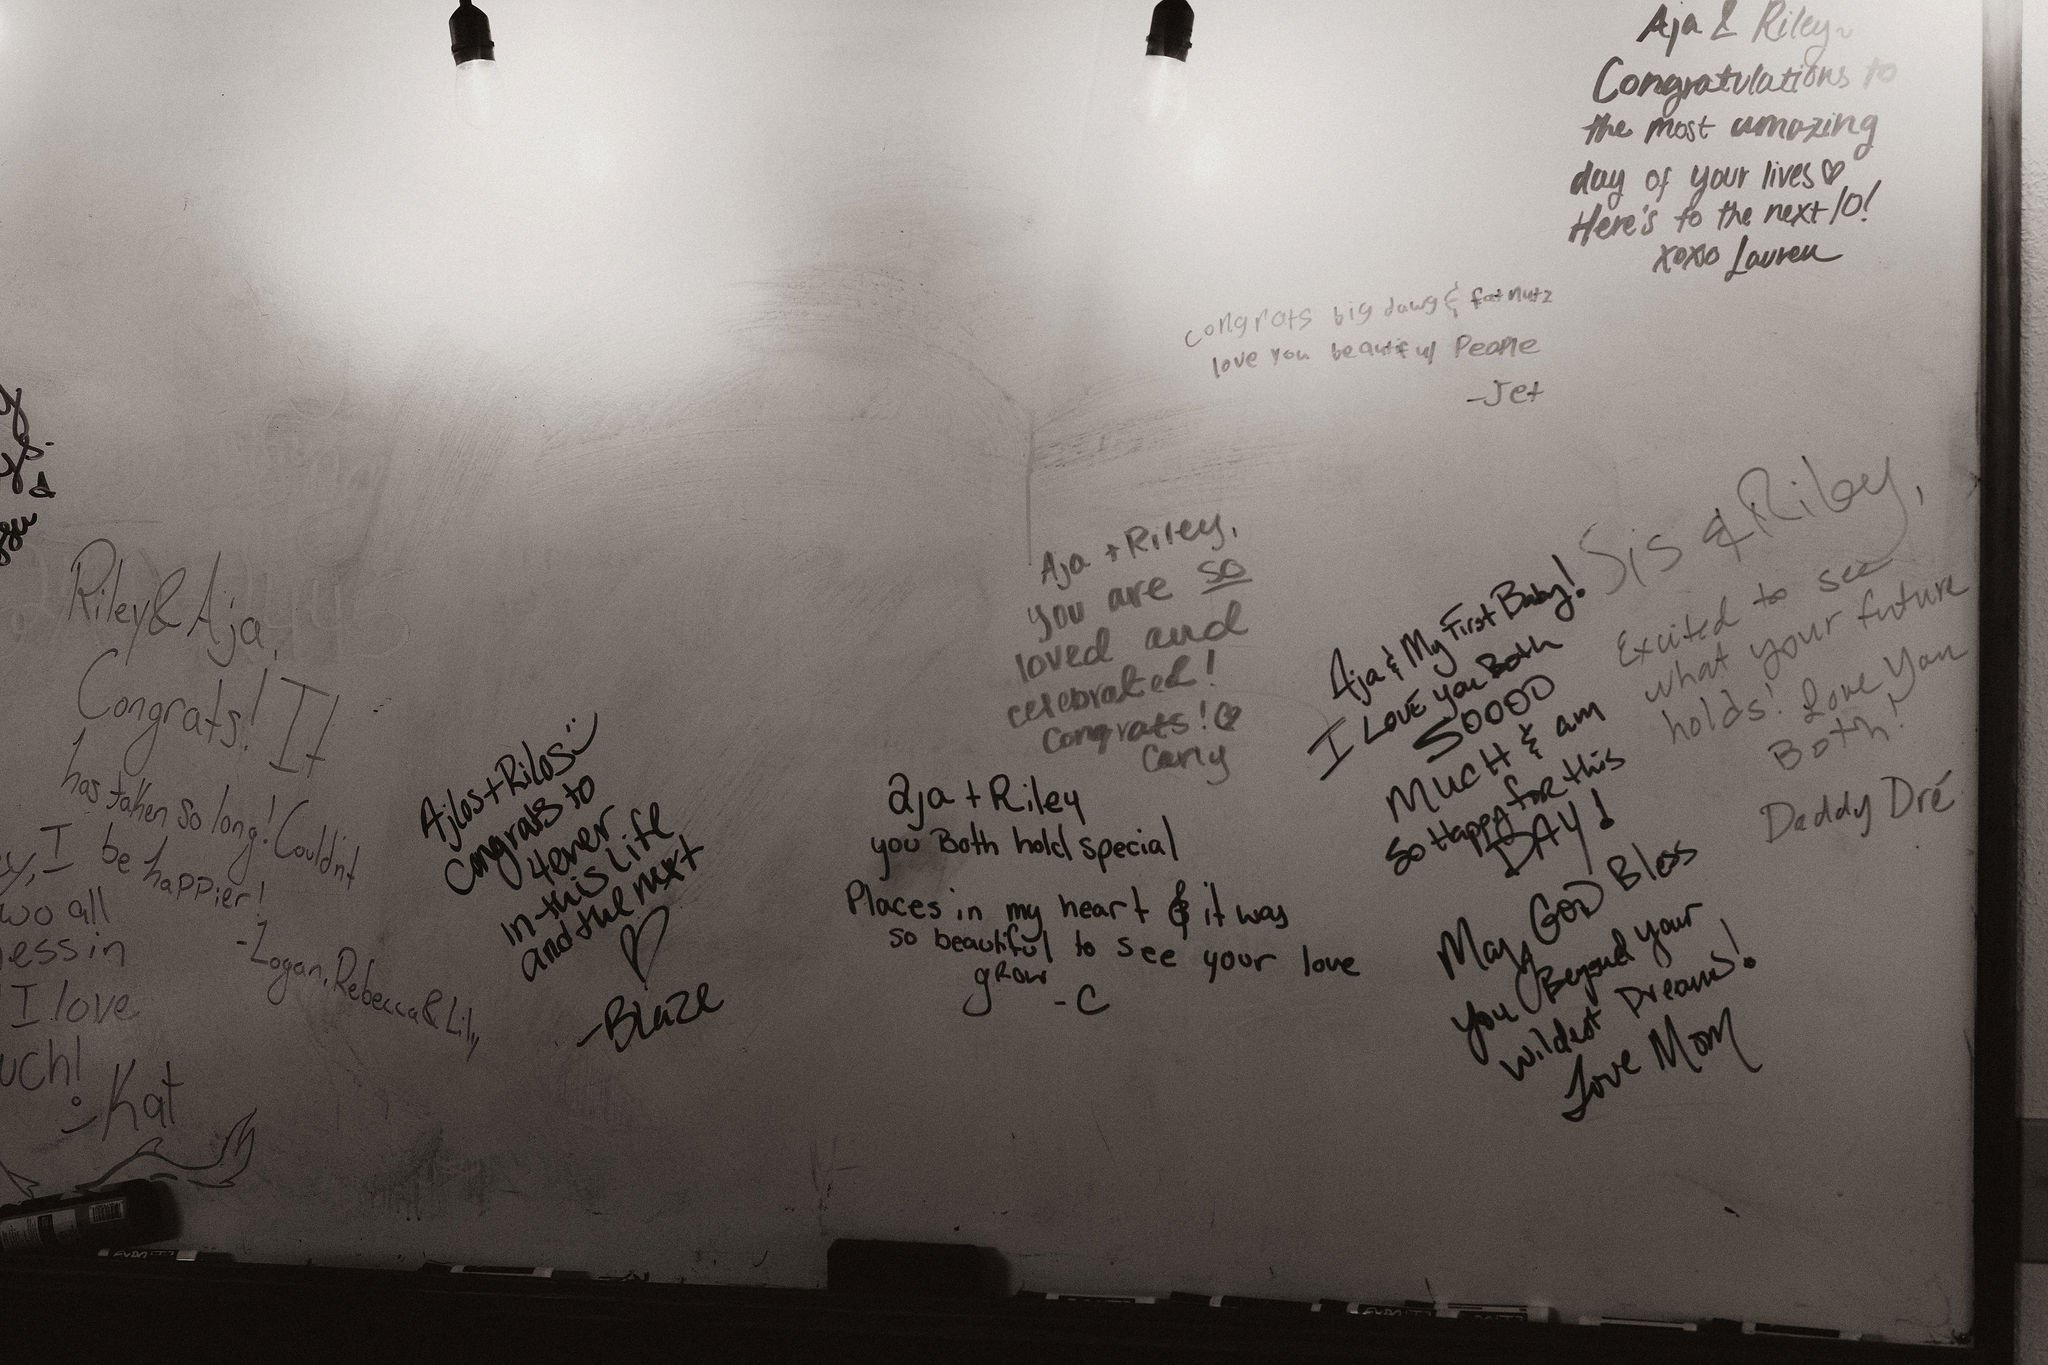 Aja & Riley~
Congratulations to
the most amazing
day of your lives ♡
Here's to the next 10!
xoxo Lauren
congrats big dawg & fatnutz
love you beautiful People
-Jet
Riley & Aja,
Congrats! It
has taken so long! Couldn't
be happier!
-Logan, Rebecca & Lily
I
wo all
ess in
I love
uch!
:) Kat
Ajlos + Rilos :)
Congrats to
4ever
in this life
and the next
♡
-Blaze
Aja + Riley,
you are so
loved and
celebrated!
Congrats! ♡
Carly
Aja + Riley
you Both hold special
Places in my heart & it was
so beautiful to see your love
grow
-C
Aja & My First Baby!
I Love you Both
SOOOO
MUCH & am
So Happy for this
DAY!
May GOD Bless
you Beyond your
wildest Dreams!
Love Mom
Sis & Riley,
Excited to see
what your future
holds! Love You
Both!
Daddy Dré